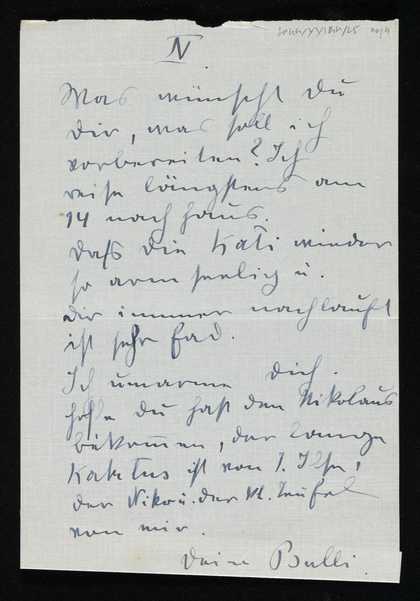 IV.
Was wünscht Du
Dir, was soll ich
vorbereiten? Ich
reise längstens am
14 nach Haus.
Dass die Kati wieder
so armselig u.
Dir immer nachlauft
ist sehr fad.
Ich umarme Dich.
hoffe Du hast den Nikolaus
bekommen, der
Kaktus ist von
der Niko u. der kl. Teufel
von mir.
Deine Bulli.